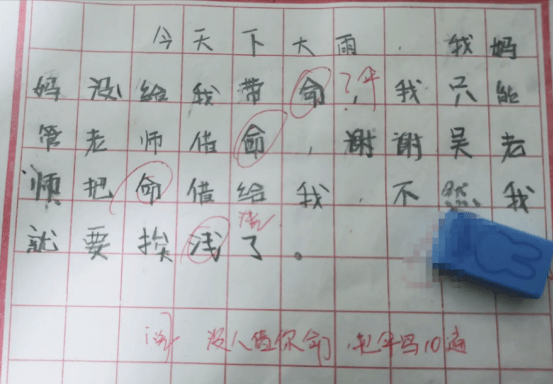 今天下大雨,我妈
妈没给我带命,伞我只能
管老师借命,谢谢吴老
师把命借给我,不然我
就要挨浅了。
没人借你命,把伞写10遍